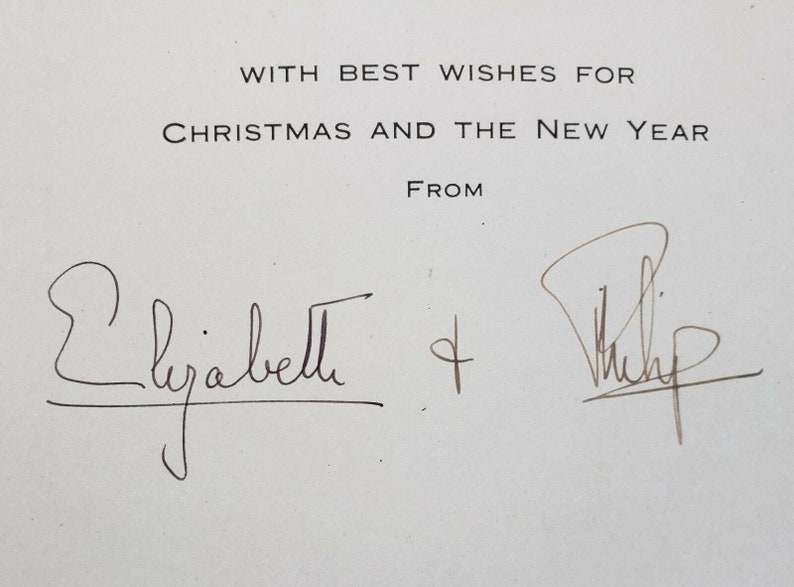 WITH BEST WISHES FOR
CHRISTMAS AND THE NEW YEAR
FROM
Elizabeth & Philip